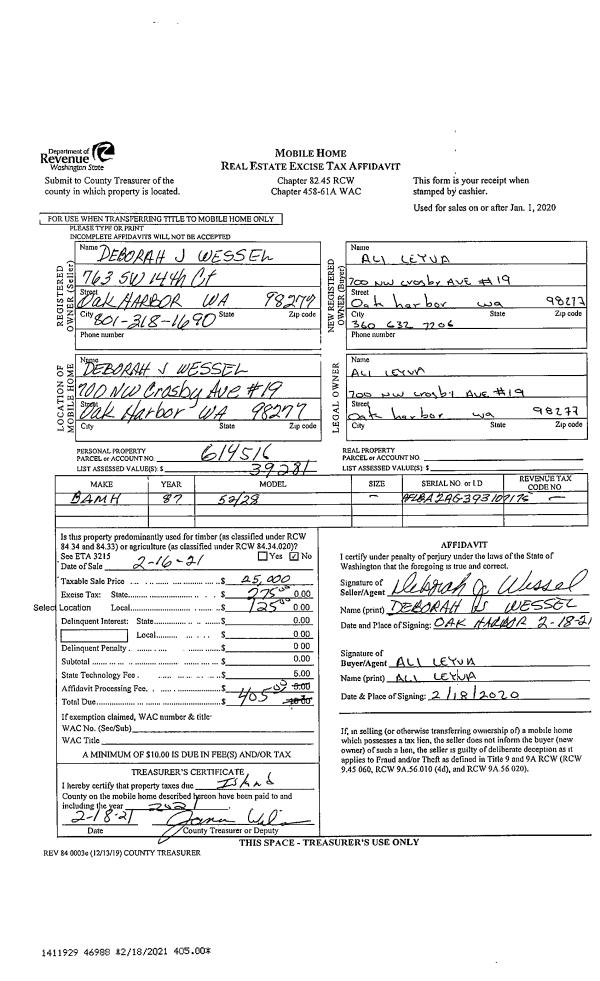 Department of
Revenue
Washington State
Submit to County Treasurer of the
county in which property is located.
MOBILE HOME
REAL ESTATE EXCISE TAX AFFIDAVIT
Chapter 82.45 RCW
Chapter 458-61A WAC
This form is your receipt when
stamped by cashier.
Used for sales on or after Jan. 1, 2020
FOR USE WHEN TRANSFERRING TITLE TO MOBILE HOME ONLY
PLEASE TYPE OR PRINT
INCOMPLETE AFFIDAVITS WILL NOT BE ACCEPTED
REGISTERED OWNER (Seller)
Name DEBORAH J WESSEL
763 SW 14th Ct
Street
Oak HARBOR WA 98277
City State Zip code
801-318-1690
Phone number
NEW REGISTERED OWNER (Buyer)
Name
ALI LEYUA
700 NW crosby AVE #19
Street
Oak harbor wa 98277
City State Zip code
360 632 7206
Phone number
LOCATION OF MOBILE HOME
Name
DEBORAH J WESSEL
700 NW Crosby Ave #19
Street
Oak Harbor WA 98277
City State Zip code
LEGAL OWNER
Name
ALI LEYUA
700 NW crosby AVE #19
Street
Oak harbor wa 98277
City State Zip code
PERSONAL PROPERTY
PARCEL or ACCOUNT NO. 614516
LIST ASSESSED VALUE(S): $ 39281
REAL PROPERTY
PARCEL or ACCOUNT NO.
LIST ASSESSED VALUE(S): $
MAKE YEAR MODEL SIZE SERIAL NO. or I.D REVENUE TAX CODE NO
BAMH 87 52/28 – –
Is this property predominantly used for timber (as classified under RCW
84 34 and 84.33) or agriculture (as classified under RCW 84.34.020)?
See ETA 3215 Yes No
Date of Sale 2-16-21
Taxable Sale Price $ 25,000
Excise Tax: State $ 275.00 0.00
Select Location Local $ 125.00 0.00
Delinquent Interest: State $ 0.00
Local $ 0 00
Delinquent Penalty $ 0 00
Subtotal $ 0.00
State Technology Fee $ 5.00
Affidavit Processing Fee. $ 5.00
Total Due $ 405.00 10.00
If exemption claimed, WAC number & title·
WAC No. (Sec/Sub)
WAC Title
A MINIMUM OF $10.00 IS DUE IN FEE(S) AND/OR TAX
TREASURER'S CERTIFICATE
I hereby certify that property taxes due Island
County on the mobile home described hereon have been paid to and
including the year 2021
2-18-21
Date County Treasurer or Deputy
AFFIDAVIT
I certify under penalty of perjury under the laws of the State of
Washington that the foregoing is true and correct.
Signature of
Seller/Agent Deborah J Wessel
Name (print) DEBORAH J WESSEL
Date and Place of Signing: OAK HARBOR 2-18-21
Signature of
Buyer/Agent ALI LEYUA
Name (print) ALI LEYUA
Date & Place of Signing: 2/18/2020
If, in selling (or otherwise transferring ownership of) a mobile home
which possesses a tax lien, the seller does not inform the buyer (new
owner) of such a lien, the seller is guilty of deliberate deception as it
applies to Fraud and/or Theft as defined in Title 9 and 9A RCW (RCW
9.45 060, RCW 9A.56.010 (4d), and RCW 9A.56 020).
THIS SPACE - TREASURER'S USE ONLY
REV 84 0003e (12/13/19) COUNTY TREASURER
1411929 46988 *2/18/2021 405.00*